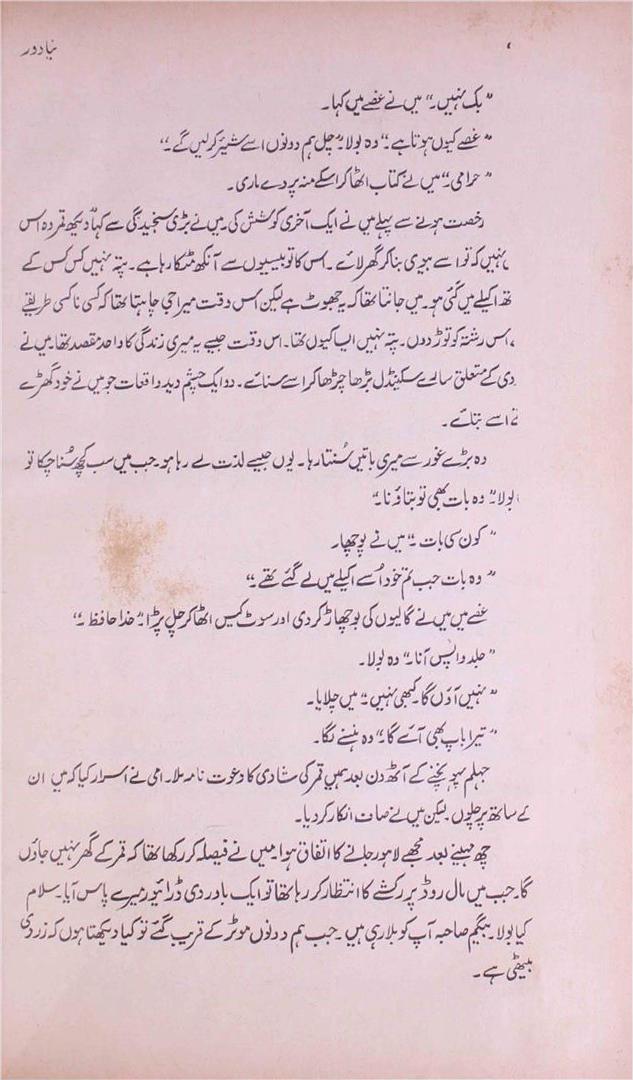 نیا دور
"بک نہیں۔" میں نے غصے میں کہا۔
"غصے کیوں ہوتا ہے۔" وہ بولا۔ "چل ہم دونوں اسے شیئر کر لیں گے۔"
"حرامی۔" میں نے کتاب اٹھا کر اسکے منہ پر دے ماری۔
رخصت ہونے سے پہلے میں نے ایک آخری کوشش کی۔ میں نے بڑی سنجیدگی سے کہا "دیکھ قمر وہ اس
نہیں کہ تو اسے بیوی بنا کر گھر لائے۔ اس کا تو بیسیوں سے آنکھ مٹکا رہا ہے۔ پتہ نہیں کس کس کے
تھ اکیلے میں گئی ہو۔ میں جانتا تھا کہ یہ جھوٹ ہے لیکن اس وقت میرا جی چاہتا تھا کہ کسی نا کسی طریقے
اس رشتہ کو توڑ دوں۔ پتہ نہیں ایسا کیوں تھا۔ اس وقت جیسے یہ میری زندگی کا واحد مقصد تھا۔ میں نے
دی کے متعلق سالے سکینڈل بڑھا چڑھا کر اسے سنائے۔ دو ایک چشم دید واقعات جو میں نے خود گھڑے
تھے اسے بتائے۔
وہ بڑے غور سے میری باتیں سُنتا رہا۔ یوں جیسے لذت لے رہا ہو۔ جب میں سب کچھ سُنا چکا تو
بولا۔ "وہ بات بھی تو بتاؤ نا۔"
"کون سی بات۔" میں نے پوچھا۔
"وہ بات جب تم خود اُسے اکیلے میں لے گئے تھے۔"
غصے میں میں نے گالیوں کی بوچھاڑ کر دی اور سوٹ کیس اٹھا کر چل پڑا۔ "خدا حافظ۔"
"جلد واپس آنا۔" وہ بولا۔
"نہیں آؤں گا۔ کبھی نہیں۔" میں چلایا۔
"تیرا باپ بھی آئے گا۔" وہ ہنسنے لگا۔
جہلم پہونچنے کے آٹھ دن بعد ہمیں قمر کی شادی کا دعوت نامہ ملا۔ امی نے اسرار کیا کہ میں ان
کے ساتھ چلوں لیکن میں نے صاف انکار کر دیا۔
چھ مہینے بعد مجھے لاہور جانے کا اتفاق ہوا۔ میں نے فیصلہ کر رکھا تھا کہ قمر کے گھر نہیں جاؤں
گا۔ جب میں مال روڈ پر رکشے کا انتظار کر رہا تھا تو ایک باوردی ڈرائیور میرے پاس آیا۔ سلام
کیا بولا۔ بیگم صاحبہ آپ کو بلا رہی ہیں۔ جب ہم دونوں موٹر کے قریب گئے تو کیا دیکھتا ہوں کہ زردی
بیٹھی ہے۔